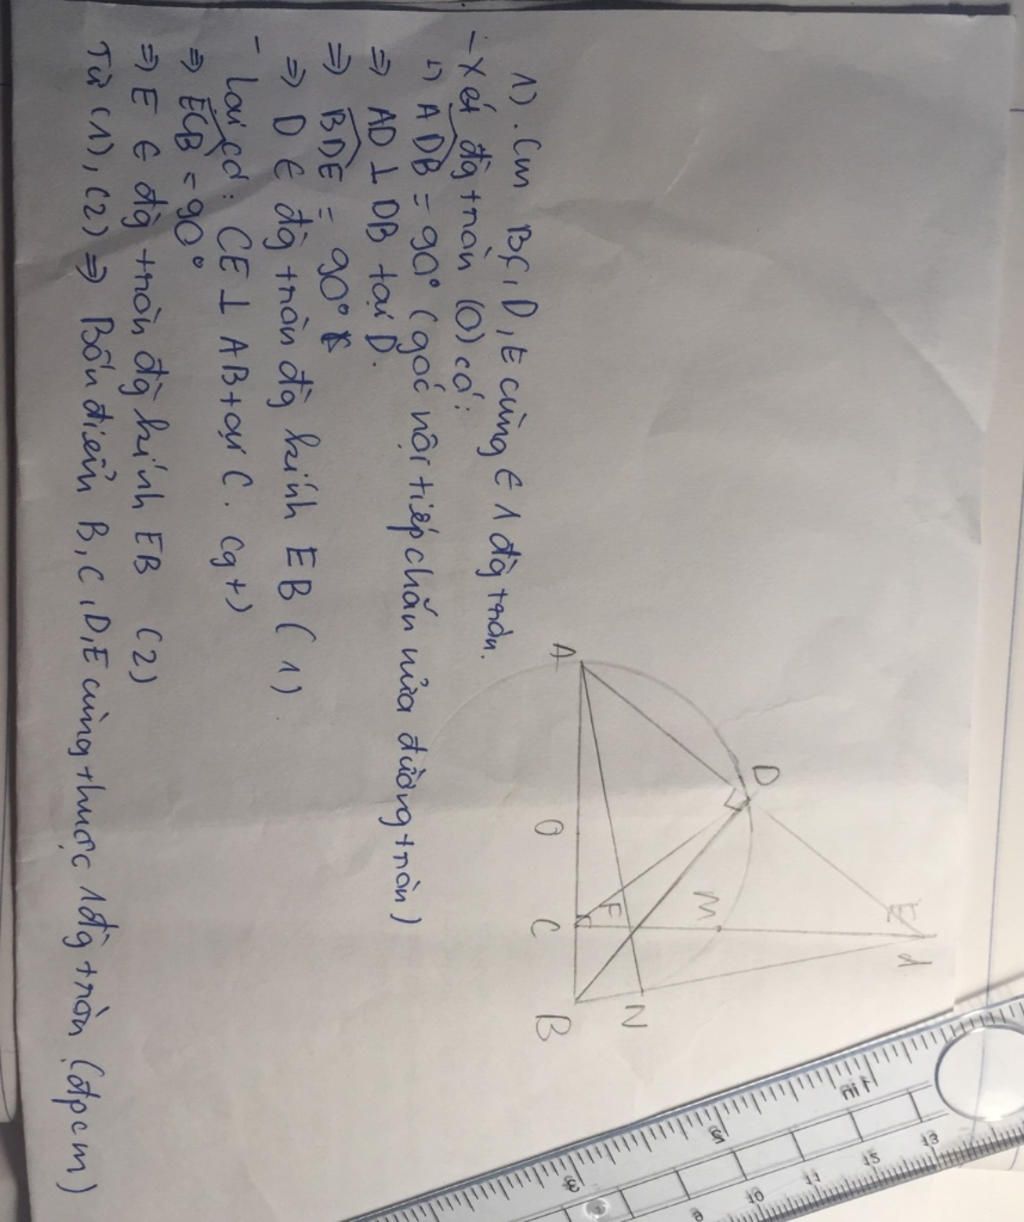 1). Cm B,C,D,E cùng ∈ 1 đg tròn.
- Xét đg tròn (O) có:
↳ ADB = 90° (góc nội tiếp chắn nửa đường tròn)
⇒ AD ⊥ DB tại D.
⇒ BDE = 90°
⇒ D ∈ đg tròn đg kính EB (1)
- Lại có: CE ⊥ AB tại C. (gt)
⇒ ECB = 90°
⇒ E ∈ đg tròn đg kính EB (2)
Từ (1), (2) ⇒ Bốn điểm B, C, D, E cùng thuộc 1 đg tròn (đpcm)
A
D
O
C
F
M
E
d
B
N
1 in
2
3
13
12
11
10
9